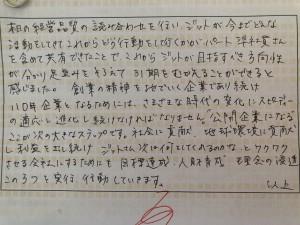 和の経営品質の読み合わせを行い、ジットが今までどんな
活動をしてきてこれからどう行動をして行くのかがパート課社員さん
を含めて共有できたことで、これからジットが目指すべき方向性
が分かり足並みをそろえて31期をむかえることができると
感じました。 創業の精神を地でいく企業であり続け
110年企業となるためには、さまざまな時代の変化にスピーディー
に適応し進化し続けなければなりません。公開企業になる
ここが次の大きなステップです。社会に貢献、地球環境に貢献
し利益を出し続け ジットさん次は何してくれるのかな、とワクワク
させる会社にするためにも 目標達成、人財育成、理念の浸透
この3つを実行、行動していきます。
以上